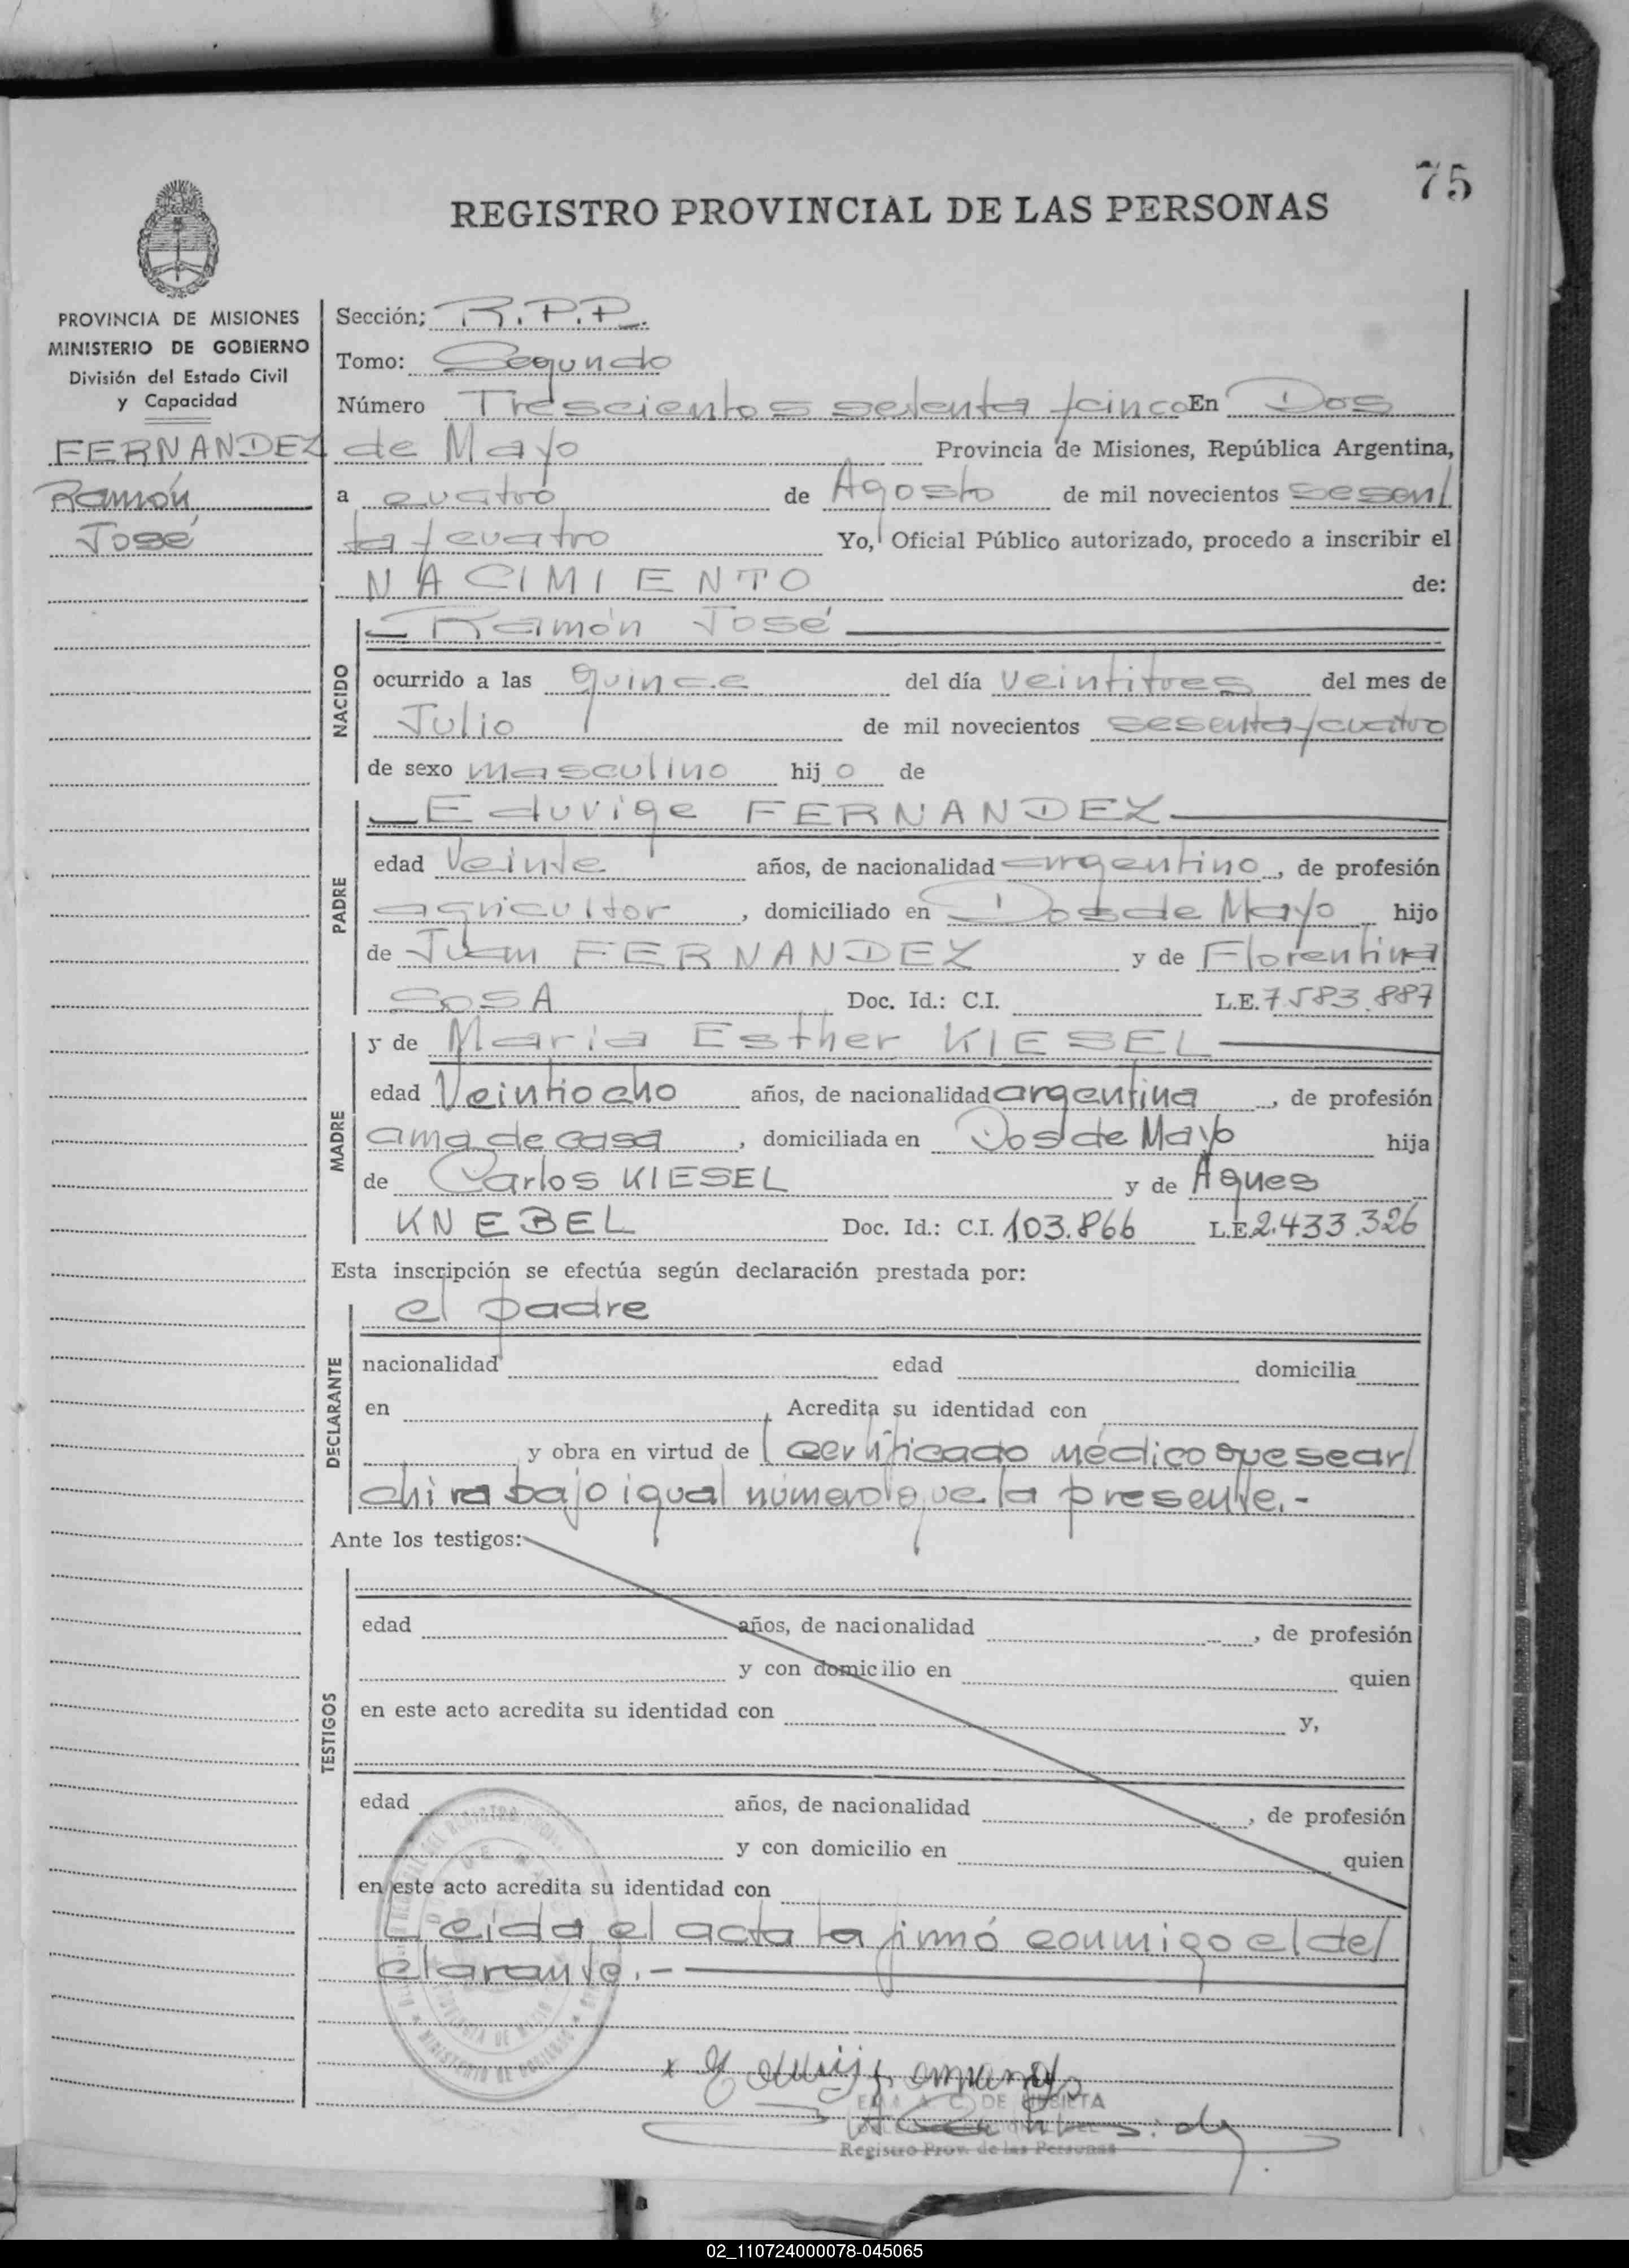 75
REGISTRO PROVINCIAL DE LAS PERSONAS
PROVINCIA DE MISIONES
MINISTERIO DE GOBIERNO
División del Estado Civil
y Capacidad
FERNANDEZ
Ramón
José
Sección; R.P.P.
Tomo: Segundo
Número Trescientos setenta y cinco En Dos
de Mayo Provincia de Misiones, República Argentina,
a cuatro de Agosto de mil novecientos sesen/
ta y cuatro Yo, Oficial Público autorizado, procedo a inscribir el
NACIMIENTO de:
NACIDO
Ramón José
ocurrido a las quince del día veintitres del mes de
Julio de mil novecientos sesenta y cuatro
de sexo masculino hijo de
PADRE
Eduvige FERNANDEZ
edad Veinte años, de nacionalidad argentino, de profesión
agricultor, domiciliado en Dos de Mayo hijo
de Juan FERNANDEZ y de Florentina
SOSA Doc. Id.: C.I. L.E. 7583.887
MADRE
y de Maria Esther KIESEL
edad Veintiocho años, de nacionalidad argentina, de profesión
ama de casa, domiciliada en Dos de Mayo hija
de Carlos KIESEL y de Agnes
KNEBEL Doc. Id.: C.I. 103.866 L.E. 2.433.326
Esta inscripción se efectúa según declaración prestada por:
DECLARANTE
el padre
nacionalidad edad domicilia
en Acredita su identidad con
y obra en virtud de certificado médico que se ar/
chira bajo igual número que la presente.-
Ante los testigos:
TESTIGOS
edad años, de nacionalidad , de profesión
y con domicilio en quien
en este acto acredita su identidad con y,
edad años, de nacionalidad , de profesión
y con domicilio en quien
en este acto acredita su identidad con
Leida el acta la firmó conmigo el de/
clarante.-
Registro Prov. de las Personas
02_110724000078-045065